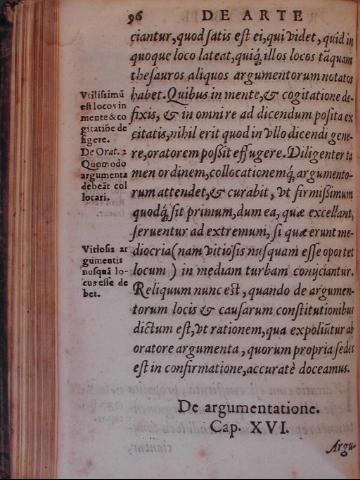 96 DE ARTE
ciantur, quod satis est ei, qui videt, quid in
quoque loco lateat, quiq́; illos locos tãquam
thesauros aliquos argumentorum notatos
habet. Quibus in mente, & cogitatione de-
fixis, & in omni re ad dicendum posita ex
citatis, nihil erit quod in vllo dicendi gene-
re, oratorem possit effugere. Diligenter ta
men ordinem, collocationemq́; argumento-
rum attendet, & curabit, vt firmissimum
quodq́; sit primum, dum ea, quæ excellant,
serventur ad extremum, si quæ erunt me-
diocria (nam vitiosis nusquam esse oportet
locum) in mediam turbam coniiciantur.
Reliquum nunc est, quando de argumen-
torum locis & causarum constitutionibus
dictum est, vt rationem, qua expoliũtur ab
oratore argumenta, quorum propria sedes
est in confirmatione, accuratè doceamus.
Vtilissimũ
est locos in
mente & co
gitatiõe de
figere.
De Orat. 2
Quomodo
argumenta
debeãt col
locari.
Vitiosis ar
gumentis
nusquã lo-
cus esse de
bet.
De argumentatione.
Cap. XVI.
Argu-